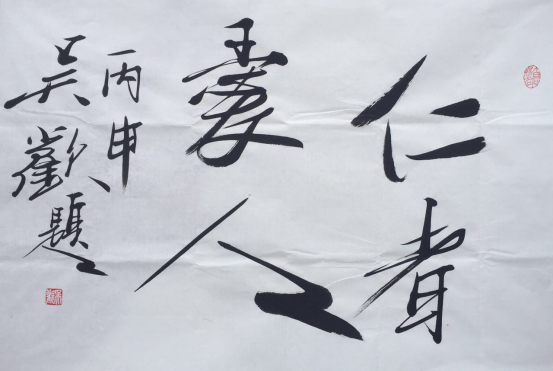 仁者
爱人
丙申
吴欢题